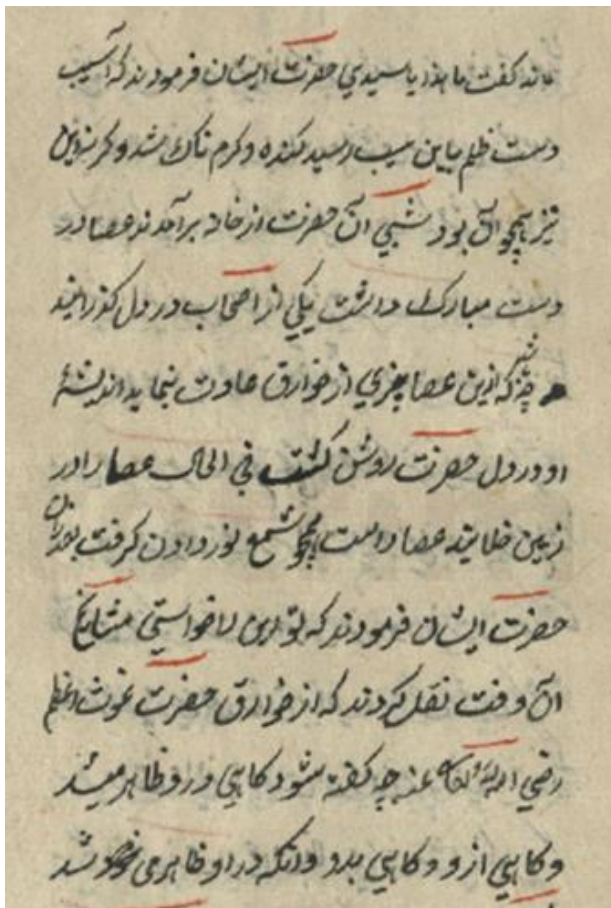 ماند گفت ما هذا یا سیدی حضرت ایشان فرمودند که آسیب
دست ظلم باین سیب رسید کنده و کرم ناک شد و کر
نیز همچو آن بود شبی آن حضرت از خانه برآمدند عصا در
دست مبارک داشت یکی از اصحاب در دل گذرانید
چه شد که ازین عصا چیزی از خوارق عادت بنماید اندیشهٔ
او در دل حضرت روشن گشت فی الحال عصا را در
زمین خلانید عصا راست همچو شمع نور دادن گرفت بعد ازان
حضرت ایشان فرمودند که تو این را خواستی مشایخ
آن وقت نقل کردند که از خوارق حضرت غوث اعظم
رضی الله تعالی عنه چه گفته شود کاهی درو ظاهر میشد
و کاهی ازو و کاهی بدو وانکه در او ظاهر می شد